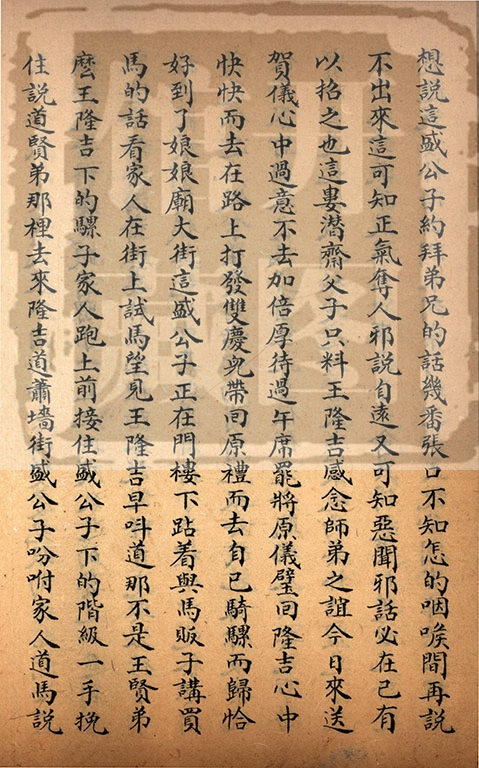 想說這盛公子約拜弟兄的話幾番張口不知怎的咽喉間再說
不出來這可知正氣奪人邪說自遠又可知惡聞邪話必在已有
以招之也這婁潛齋父子只料王隆吉感念師弟之誼今日來送
賀儀心中過意不去加倍厚待過午席罷將原儀璧回隆吉心中
快快而去在路上打發雙慶兒帶回原禮而去自已騎騾而歸恰
好到了娘娘廟大街這盛公子正在門樓下跕着與馬販子講買
馬的話看家人在街上試馬望見王隆吉早呌道那不是王賢弟
麽王隆吉下的騾子家人跑上前接住盛公子下的階級一手挽
住說道賢弟那裡去來隆吉道蕭墻街盛公子吩咐家人道馬說